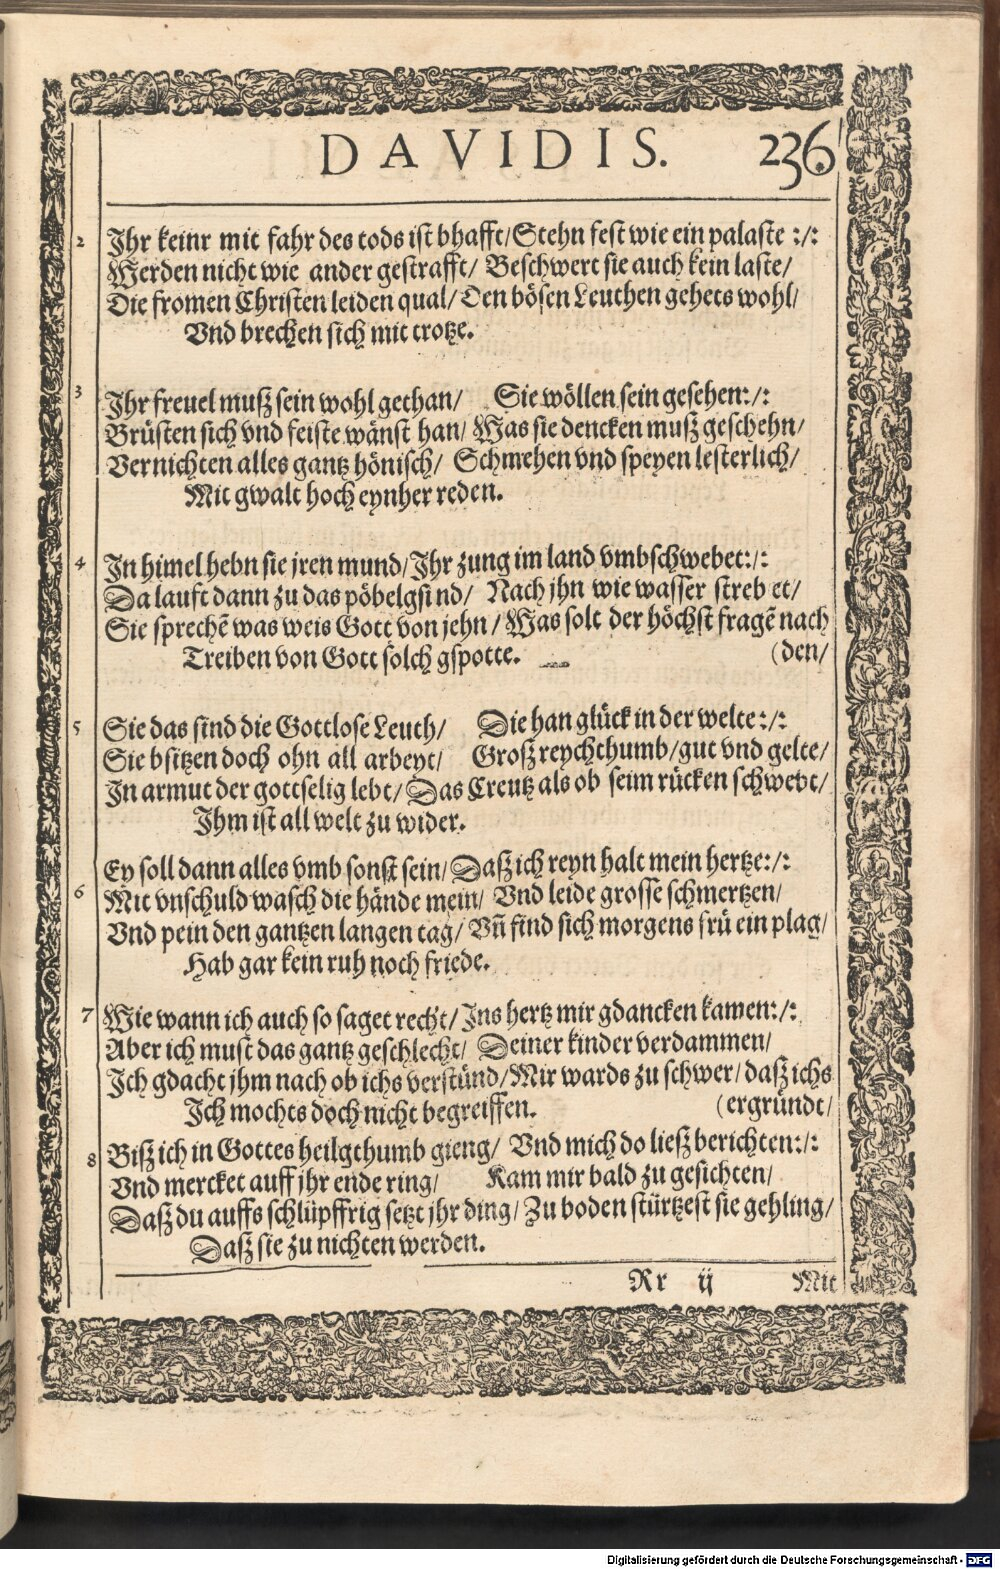 DAVIDIS. 236.
2 Ihr keinr mit fahr des tods ist bhafft/ Stehn fest wie ein palaste :/:
Werden nicht wie ander gestrafft/ Beschwert sie auch kein laste/
Die fromen Christen leiden qual/ Den bösen Leuthen gehets wohl/
Vnd brechen sich mit trotze.
3 Ihr freuel muß sein wohl gethan/ Sie wöllen sein gesehen:/:
Brüsten sich vnd feiste wänst han/ Was sie dencken muß geschehn/
Vernichten alles gantz hönisch/ Schmehen vnd speyen lesterlich/
Mit gwalt hoch eynher reden.
4 In himel hebn sie jren mund/ Ihr zung im land vmbschwebet:/:
Da lauft dann zu das pöbelgsind/ Nach jhn wie wasser strebet/
Sie sprechẽ was weis Gott von jehn/ Was solt der höchst fragẽ nach
Treiben von Gott solch gspotte. (den/
5 Sie das sind die Gottlose Leuth/ Die han glück in der welte:/:
Sie bsitzen doch ohn all arbeyt/ Groß reychthumb/ gut vnd gelte/
In armut der gottselig lebt/ Das Creutz als ob seim rücken schwebt/
Ihm ist all welt zu wider.
Ey soll dann alles vmb sonst sein/ Daß ich reyn halt mein hertze:/:
6 Mit vnschuld wasch die hände mein/ Vnd leide grosse schmertzen/
Vnd pein den gantzen langen tag/ Vñ find sich morgens frü ein plag/
Hab gar kein ruh noch friede.
7 Wie wann ich auch so saget recht/ Ins hertz mir gdancken kamen:/:
Aber ich must das gantz geschlecht/ Deiner kinder verdammen/
Ich gdacht jhm nach ob ichs verstünd/ Mir wards zu schwer/ daß ichs
Ich mochts doch nicht begreiffen. (ergründt/
8 Biß ich in Gottes heilgthumb gieng/ Vnd mich do ließ berichten:/:
Vnd mercket auff jhr ende ring/ Kam mir bald zu gesichten/
Daß du auffs schlüpffrig setzt jhr ding/ Zu boden stürtzest sie gehling/
Daß sie zu nichten werden.
Rr ij Mit
Digitalisierung gefördert durch die Deutsche Forschungsgemeinschaft - DFG